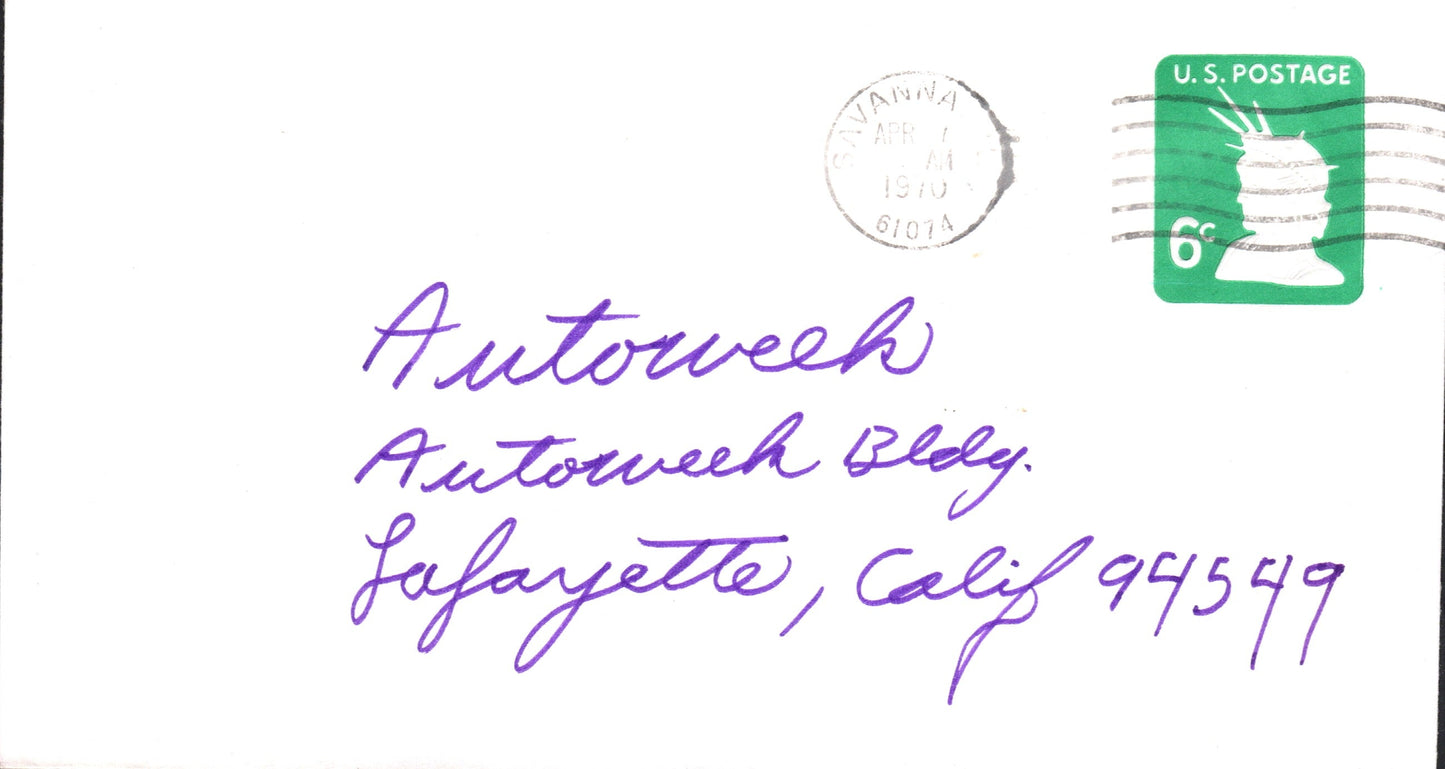 U. S. POSTAGE
SAVANNA
APR 7
AM
1970
61074
6c
Autoweek
Autoweek Bldg.
Lafayette, Calif 94549